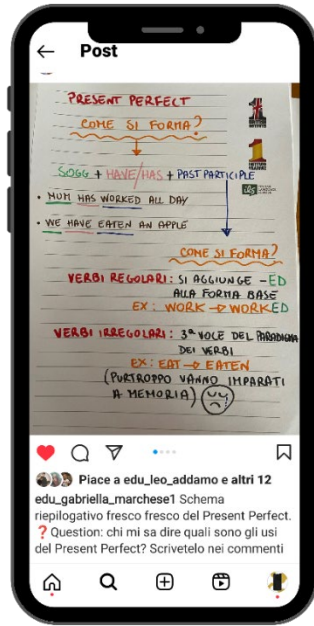 Post
PRESENT PERFECT
COME SI FORMA?
SOGG + HAVE/HAS + PAST PARTICIPLE
• MUM HAS WORKED ALL DAY
• WE HAVE EATEN AN APPLE
COME SI FORMA?
VERBI REGOLARI: SI AGGIUNGE -ED
ALLA FORMA BASE
EX: WORK → WORKED
VERBI IRREGOLARI: 3ª VOCE DEL PARADIGMA
DEI VERBI
EX: EAT → EATEN
(PURTROPPO VANNO IMPARATI
A MEMORIA)
Piace a edu_leo_addamo e altri 12
edu_gabriella_marchese1 Schema
riepilogativo fresco fresco del Present Perfect.
❓Question: chi mi sa dire quali sono gli usi
del Present Perfect? Scrivetelo nei commenti